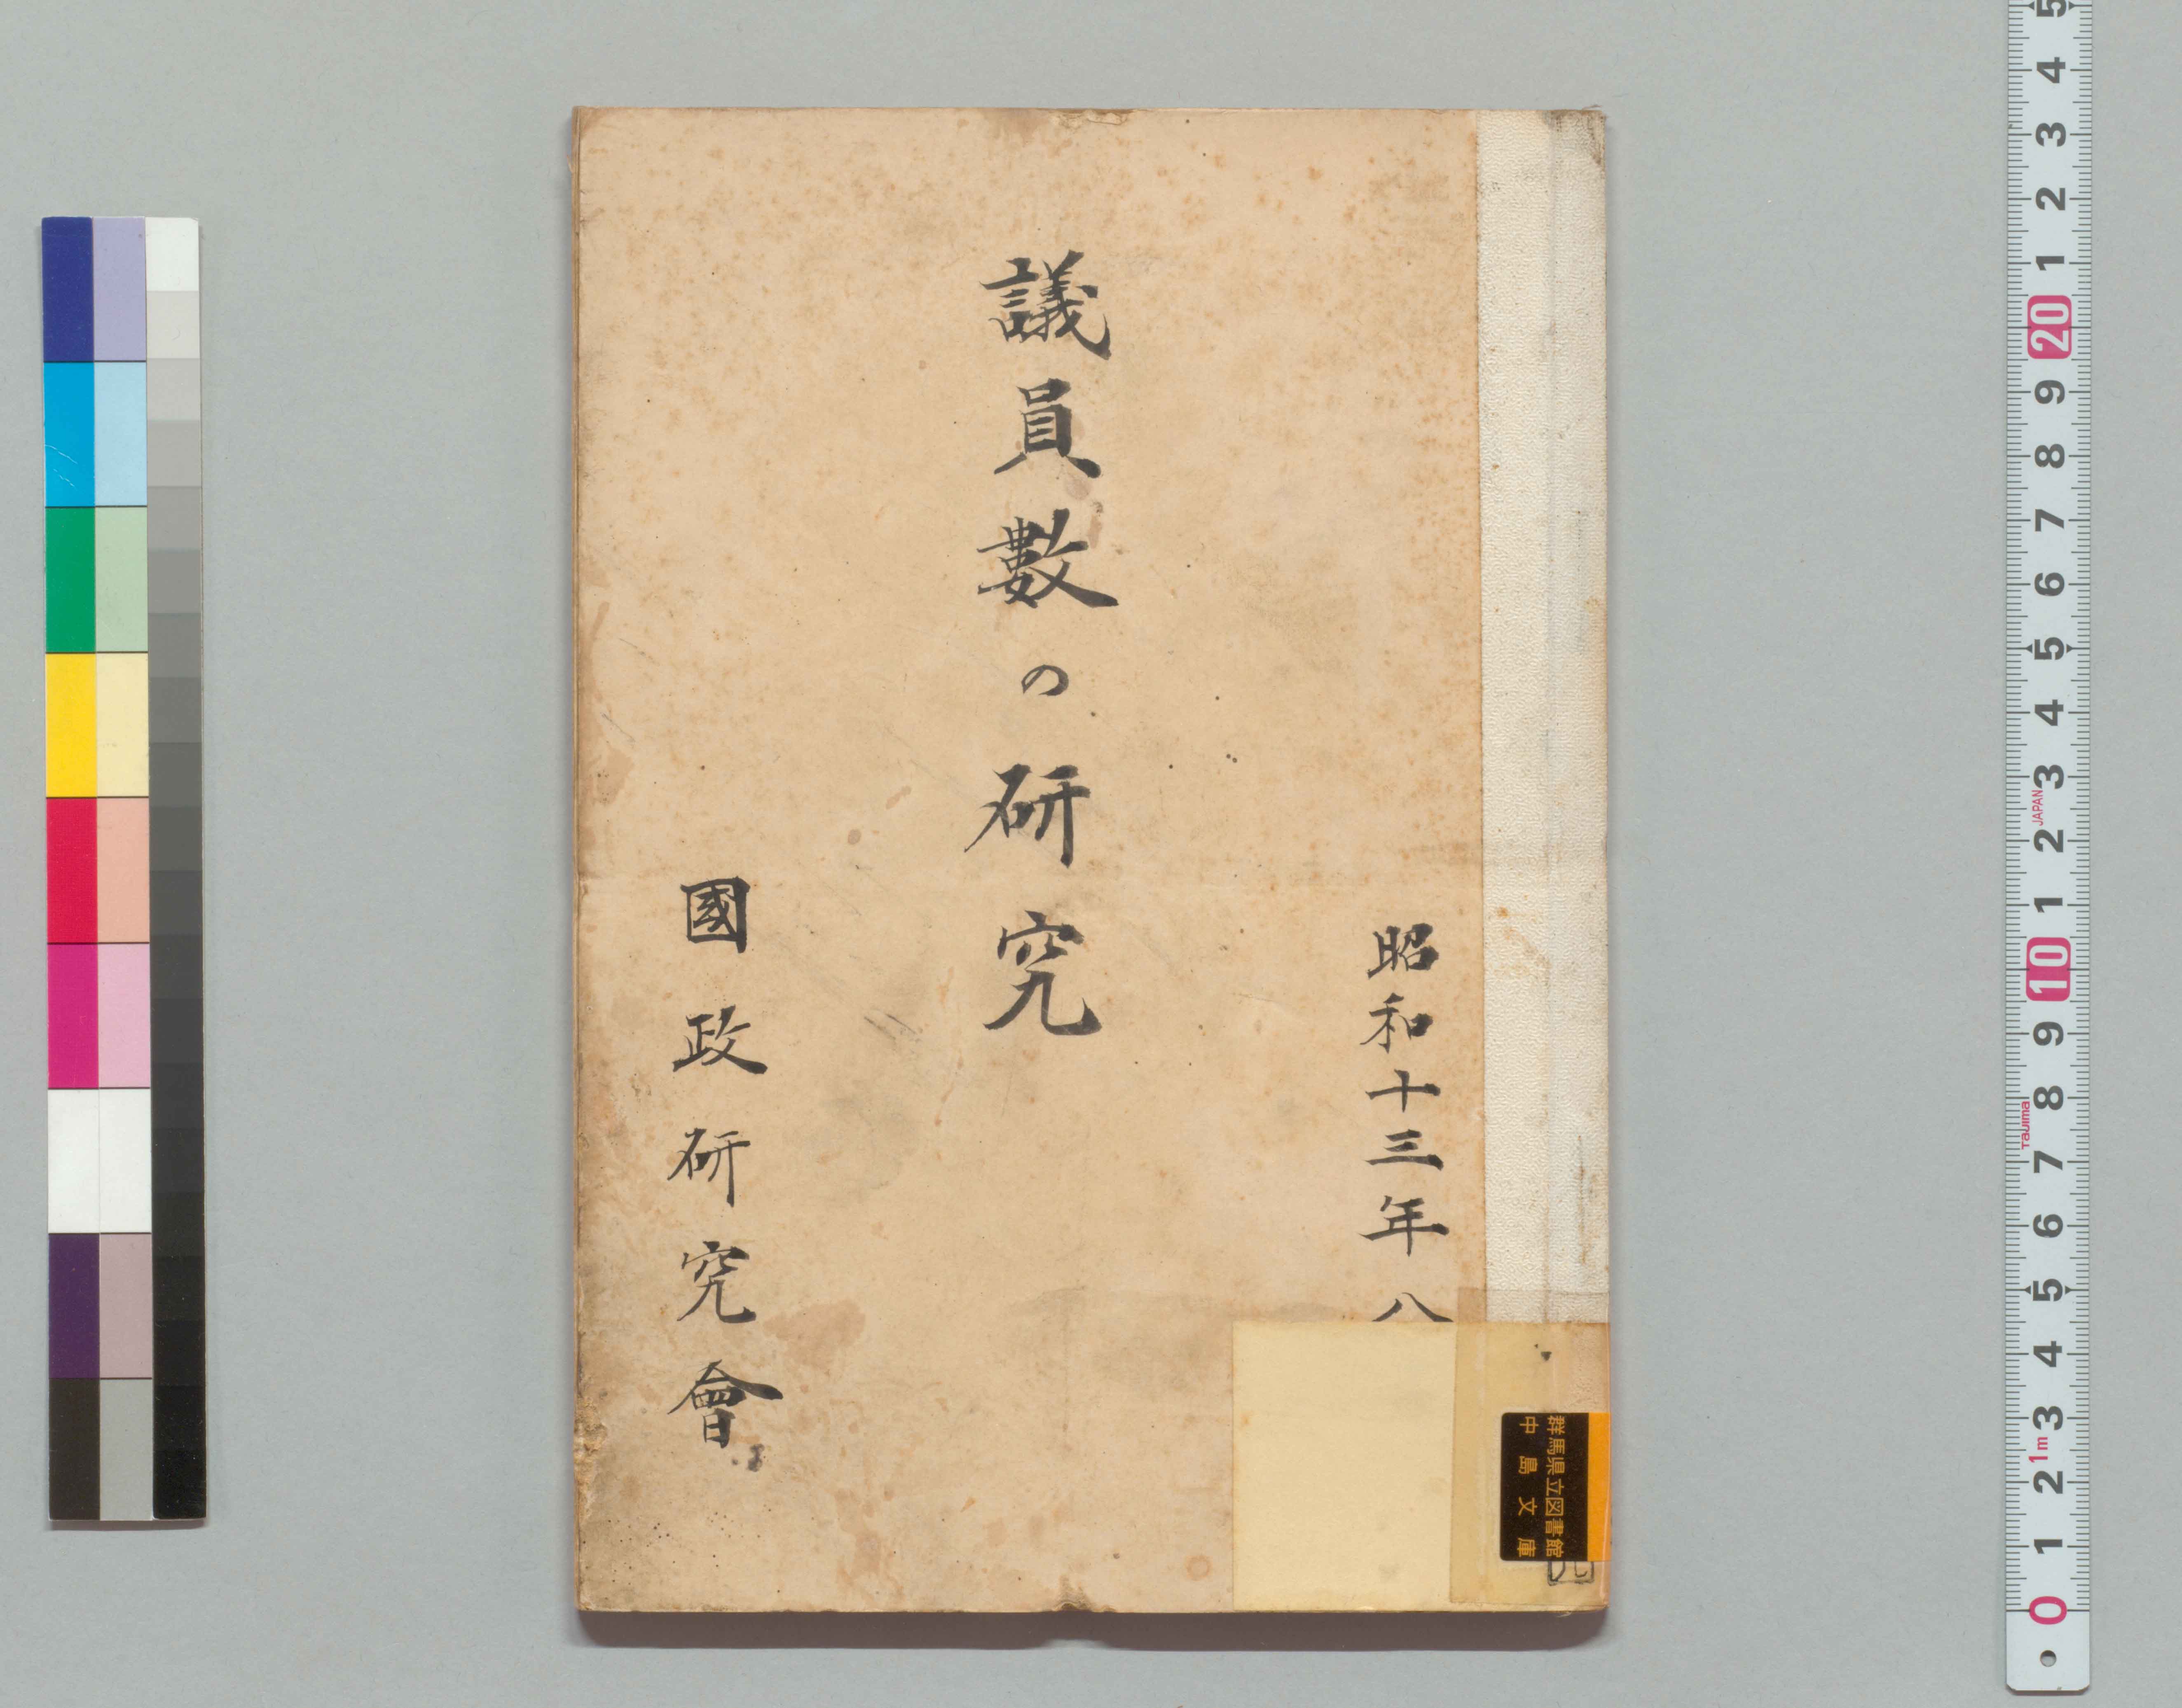 昭和十三年八
議員數の研究
國政研究會
群馬県立図書館
中島文庫
5
4
3
2
1
20
9
8
7
6
5
4
3
JAPAN
2
1
10
9
8
Tajima
7
6
5
4
3
1m
2
1
0